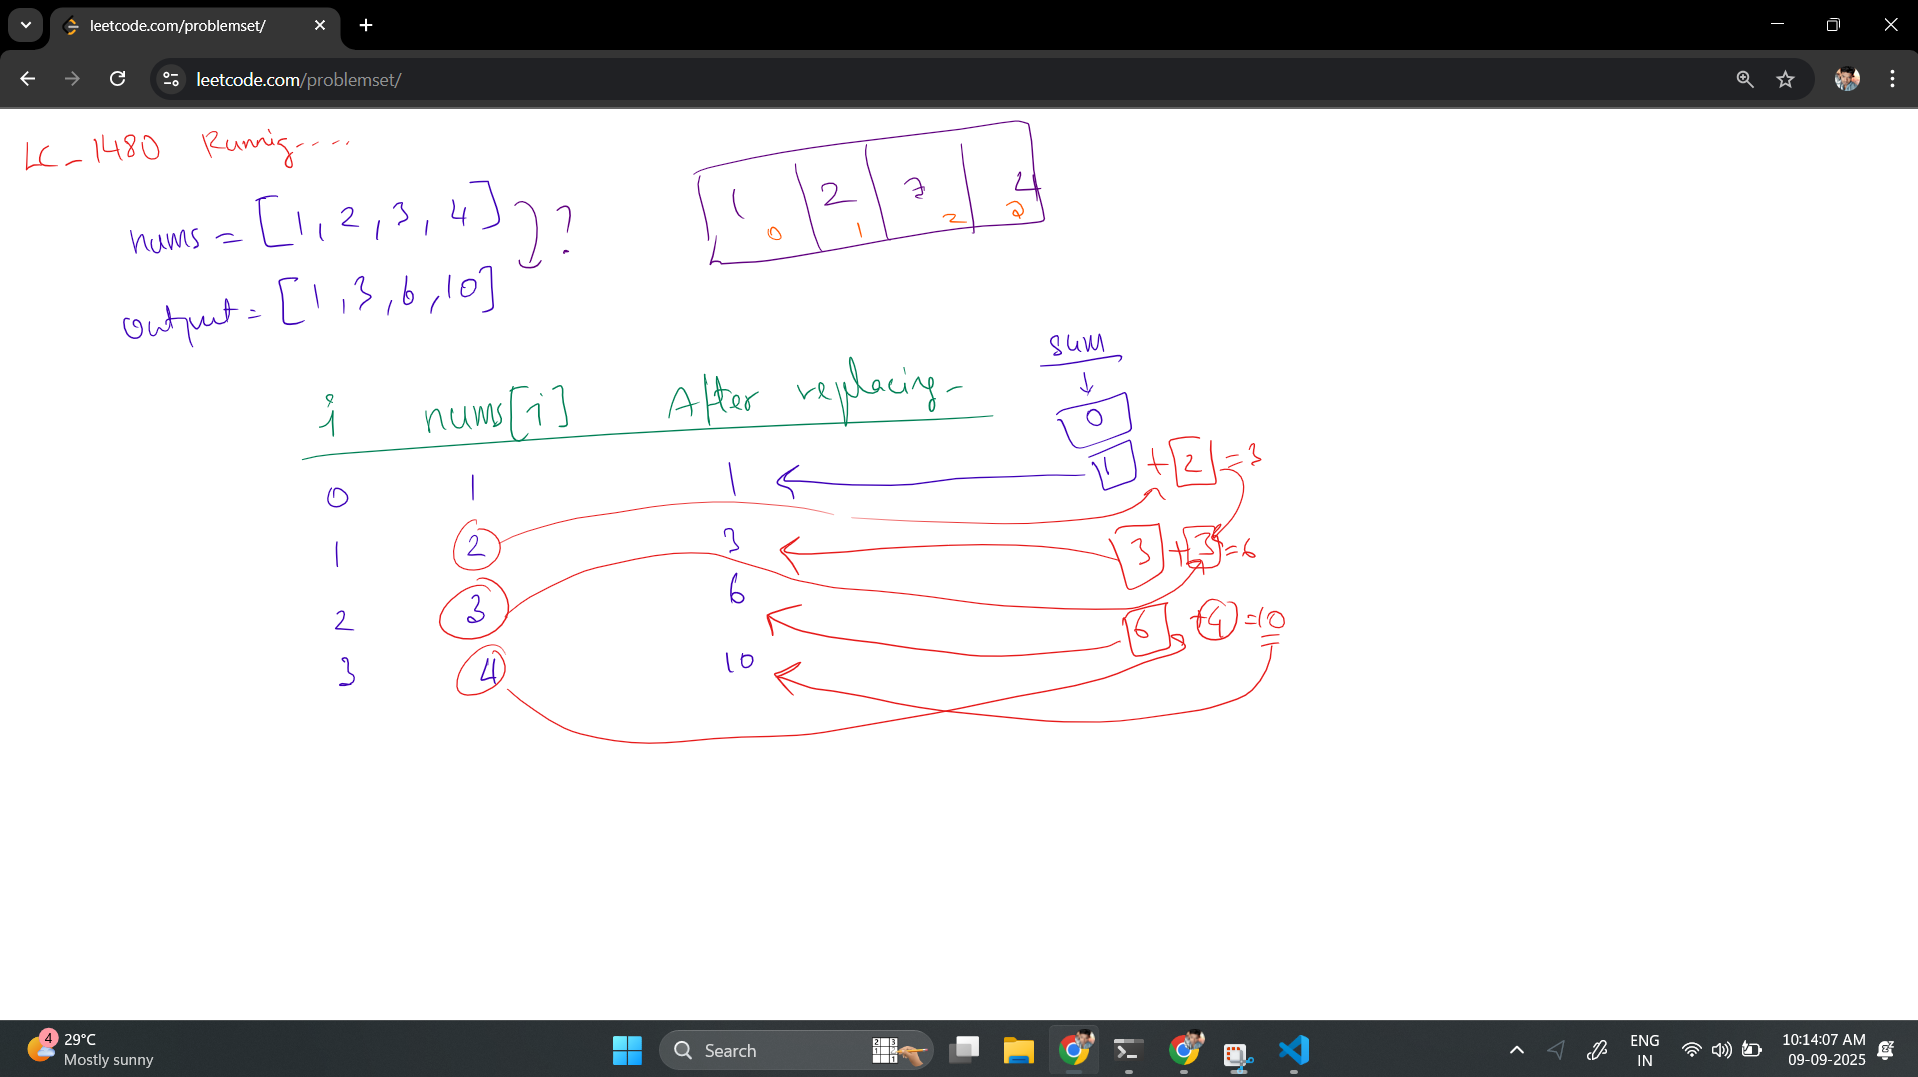 leetcode.com/problemset/
leetcode.com/problemset/
LC_1480 Runnig.....
nums = [1, 2, 3, 4] ?
output = [1, 3, 6, 10]
1 2 3 4
0 1 2 3
sum
0
i nums[i] After replacing
0 1 1 1 + 2 = 3
1 2 3 3 + 3 = 6
2 3 6 6 + 4 = 10
3 4 10
4
29°C
Mostly sunny
Search
ENG
IN
10:14:07 AM
09-09-2025